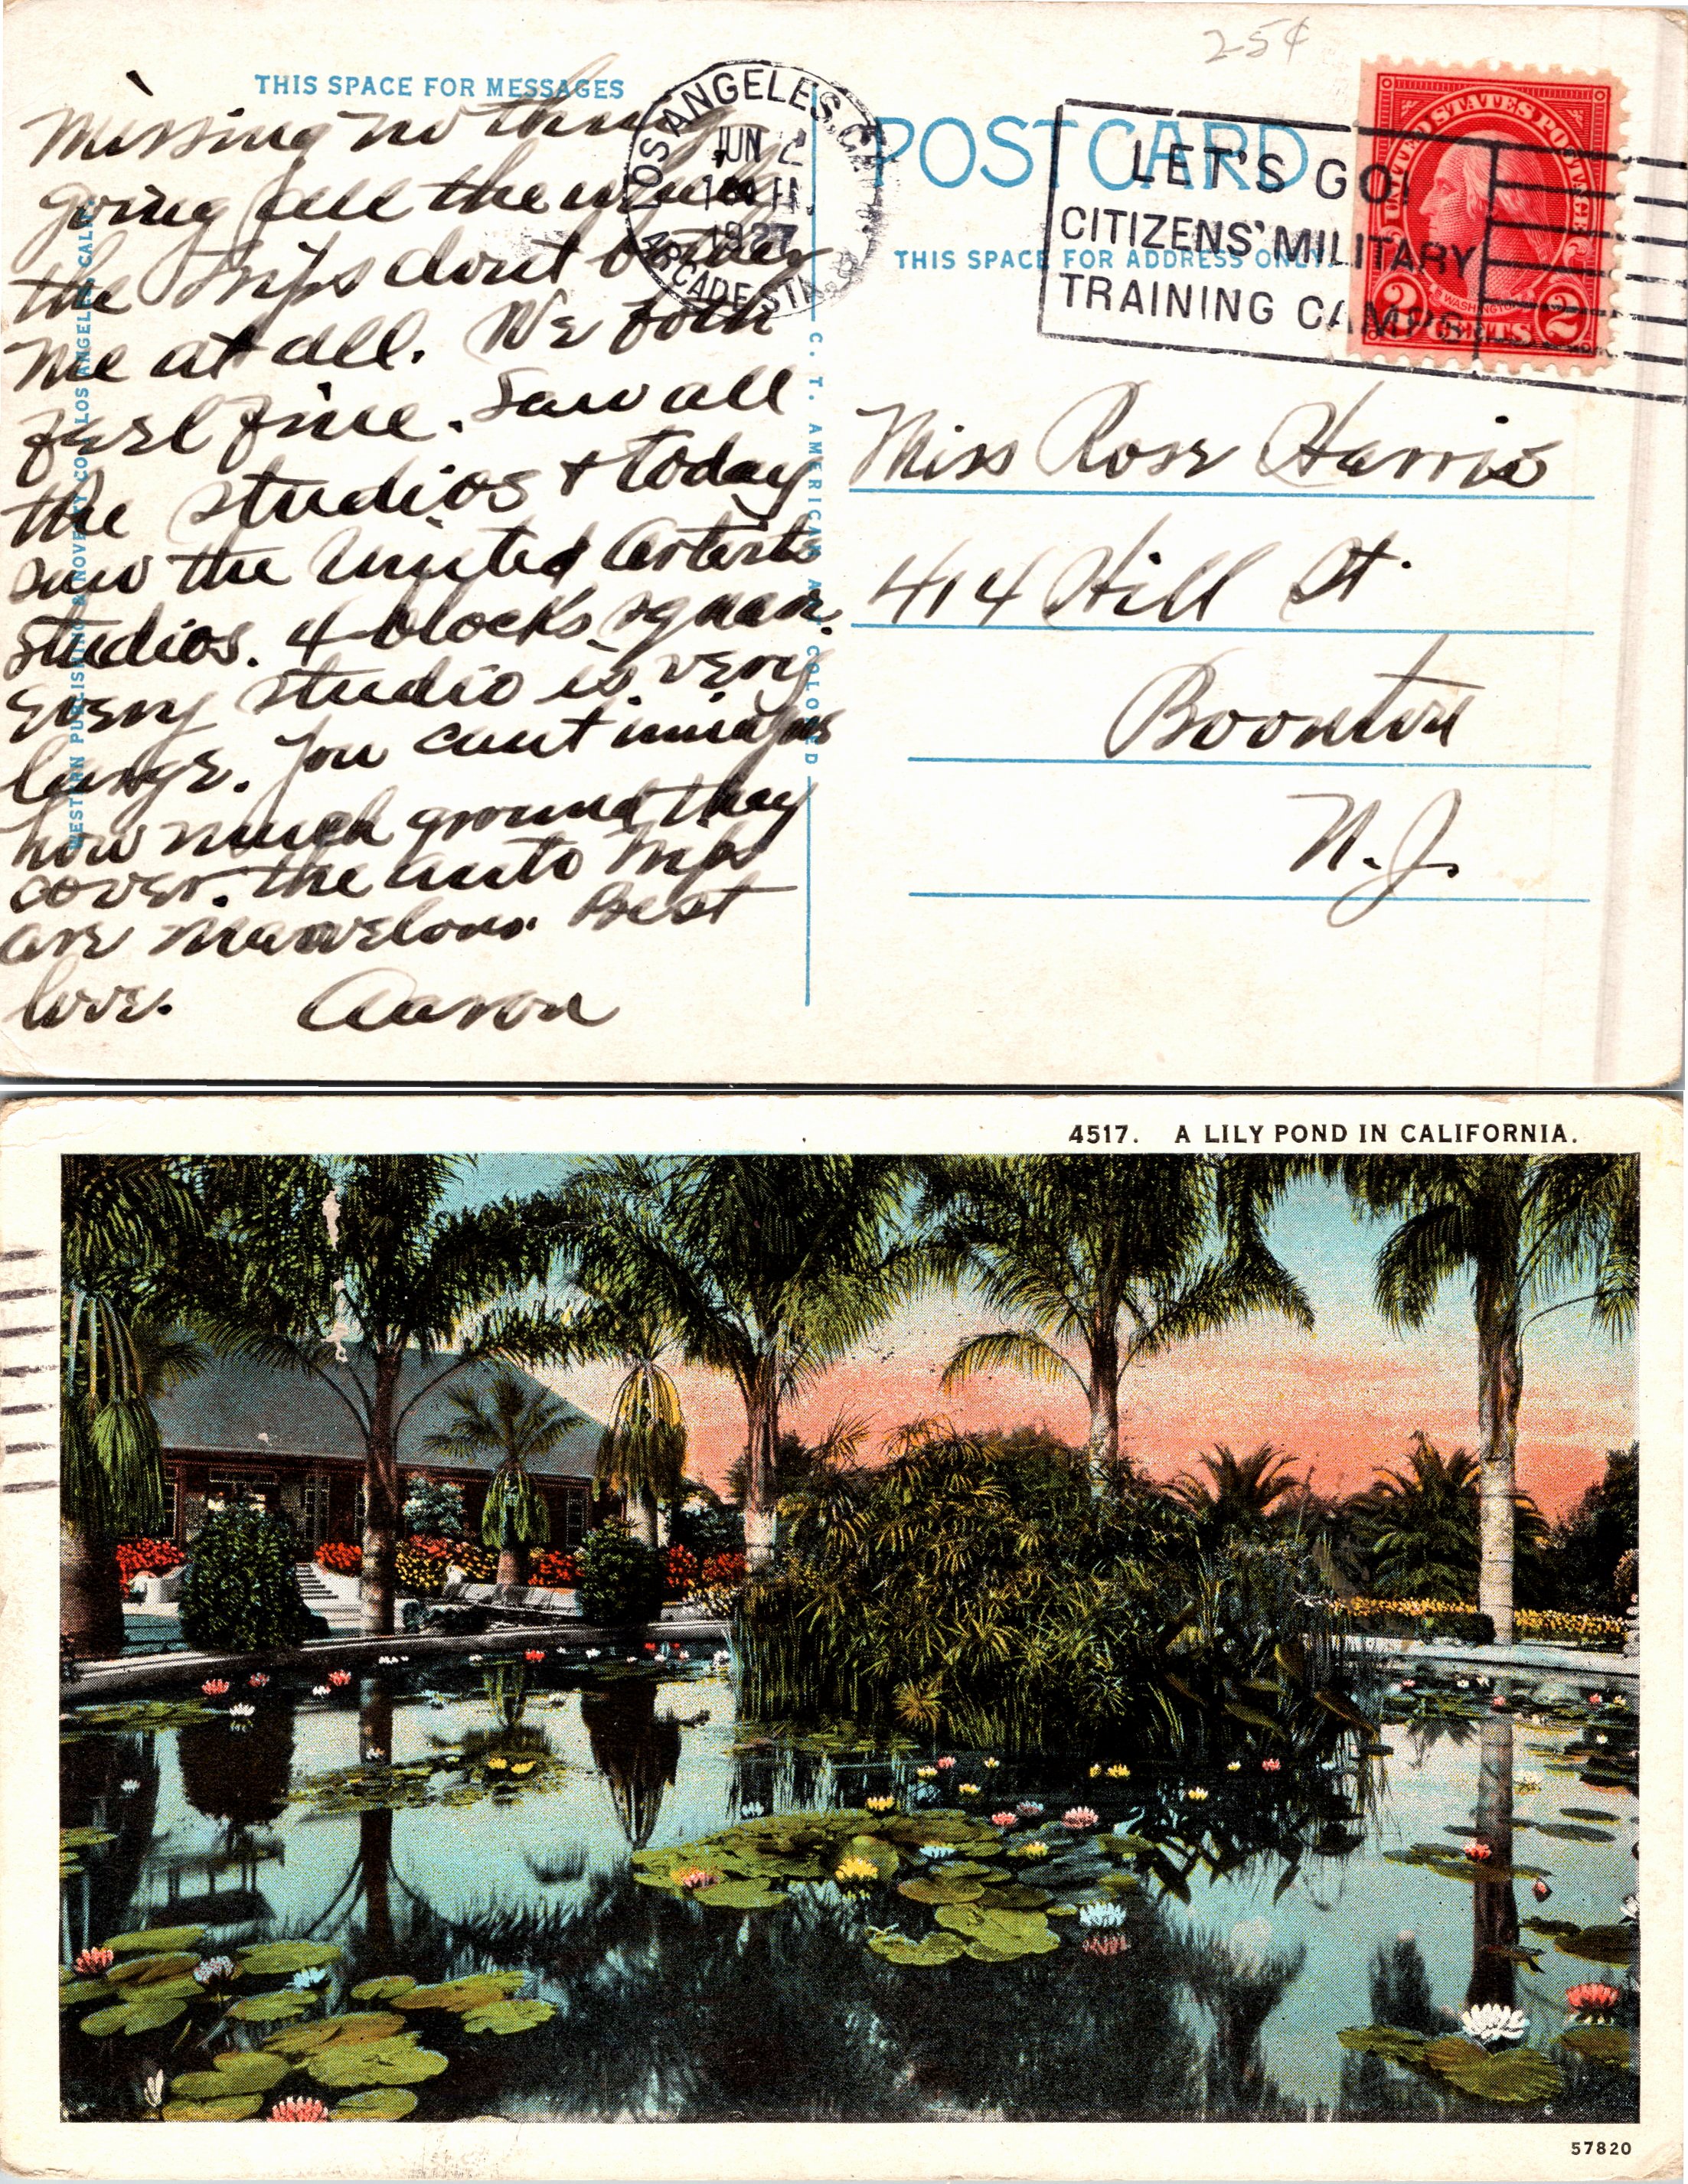 25¢
THIS SPACE FOR MESSAGES
POST CARD
THIS SPACE FOR ADDRESS ONLY.
LOS ANGELES, CALIF.
JUN 2
1927
ARCADE STA.
LET'S GO!
CITIZENS' MILITARY
TRAINING CAMPS
UNITED STATES POSTAGE
WASHINGTON
2 CENTS 2
Missing nothing
going all the while
the trips dont bother
me at all. We both
feel fine. Saw all
the studios + today
saw the United Artists
studios. 4 blocks square.
Every studio is very
large. You cant imagine
how much ground they
cover. The auto trips
are marvelous. Best
love. Aaron
WESTERN PUBLISHING & NOVELTY CO., LOS ANGELES, CALIF.
C. T. AMERICAN ART COLORED
Miss Rose Harris
414 Hill St.
Boonton
N.J.
4517. A LILY POND IN CALIFORNIA.
57820